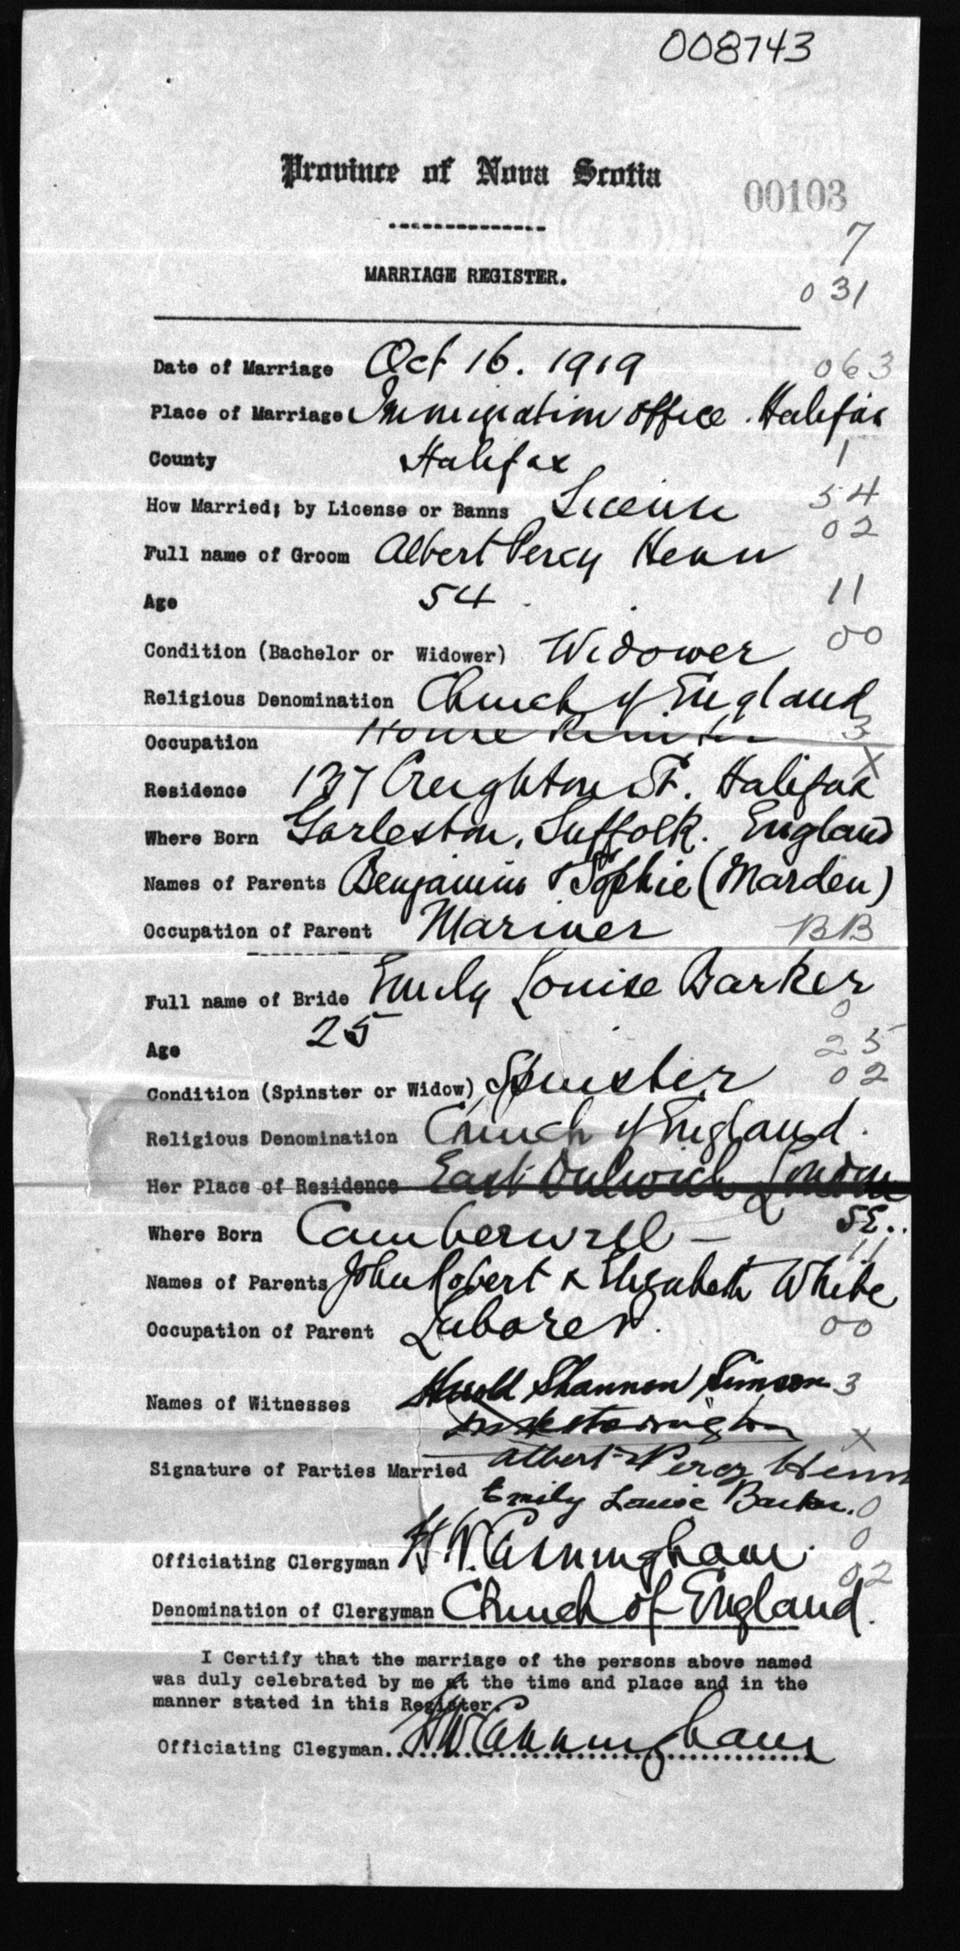 008743
Province of Nova Scotia
00103
7
MARRIAGE REGISTER.
031
Date of Marriage Oct 16. 1919 063
Place of Marriage Immigration office. Halifax
County Halifax 1
How Married; by License or Banns License 54
02
Full name of Groom Albert Percy Henn
Age 54 11
00
Condition (Bachelor or Widower) Widower
Religious Denomination Church of England
3
Occupation House
X
Residence 137 Creighton St. Halifax
Where Born Gorleston, Suffolk. England
Names of Parents Benjamin & Sophie (Marden)
Occupation of Parent Mariner BB
Full name of Bride Emily Louise Barker
0
Age 25 25
02
Condition (Spinster or Widow) Spinster
Religious Denomination Church of England.
Her Place of Residence East Dulwich London
SE..
Where Born Camberwell –
11
Names of Parents John Robert & Elizabeth White
Occupation of Parent Laborer. 00
Names of Witnesses Harold Shannon Simson 3
X
Signature of Parties Married Albert Percy Henn
Emily Louise Barker. 0
0
Officiating Clergyman H W. Cunningham.
02
Denomination of Clergyman Church of England.
I Certify that the marriage of the persons above named
was duly celebrated by me at the time and place and in the
manner stated in this Register.
Officiating Clegyman.. H W Cunningham